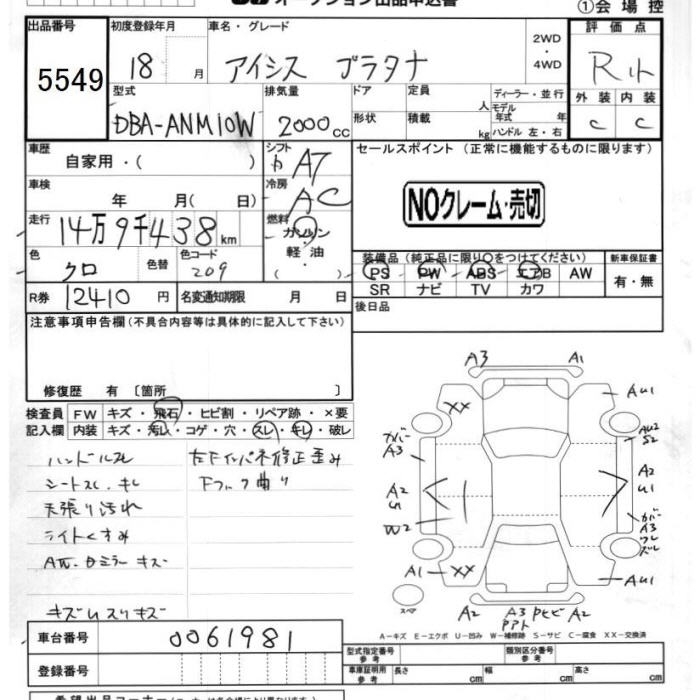 オークション出品申込書
①会場控
出品番号 初度登録年月 車名・グレード 評価点
5549 18 月 アイシス プラタナ 2WD・4WD R
型式 排気量 ドア 定員 人 ディーラー・並行 外装 内装
DBA-ANM10W 2000cc 形状 積載 kg モデル年式 年 ハンドル 左・右 C C
車歴 シフト セールスポイント (正常に機能するものに限ります)
自家用・( ) AT
車検 年 月( 日) 冷房 AC
NOクレーム・売切
走行 14万9千438km 燃料 ガソリン・軽油
色 クロ 色替 色コード 209
装備品 (純正品に限り○をつけてください) 新車保証書
PS PW ABS エアB AW 有・無
SR ナビ TV カワ
R券 12410円 名変通知期限 月 日 後日品
注意事項申告欄(不具合内容等は具体的に記入して下さい)
修復歴 有 〔箇所 〕
検査員 FW キズ・飛石・ヒビ割・リペア跡・×要
記入欄 内装 キズ・汚れ・コゲ・穴・スレ・キレ・破レ
ハンドルスレ
シートスレ、キレ
天張り汚れ
ライトくすみ
ミラーキズ
キズ
左Fインパネ修正歪み
Fフック曲り
A3 A1
XX AU1
カバー A3 AU2 S2
A2 U1 A2 U1
W2 カバー A3 ワレ ズレ
A1 XX AU1
スペア
A2 A3 A2
A-キズ E-エクボ U-凹み W-補修跡 S-サビ C-腐食 XX-交換済
車台番号 0061981
登録番号
型式指定番号 参考 類別区分番号 参考
車庫証明用 参考 長さ cm 幅 cm 高さ cm